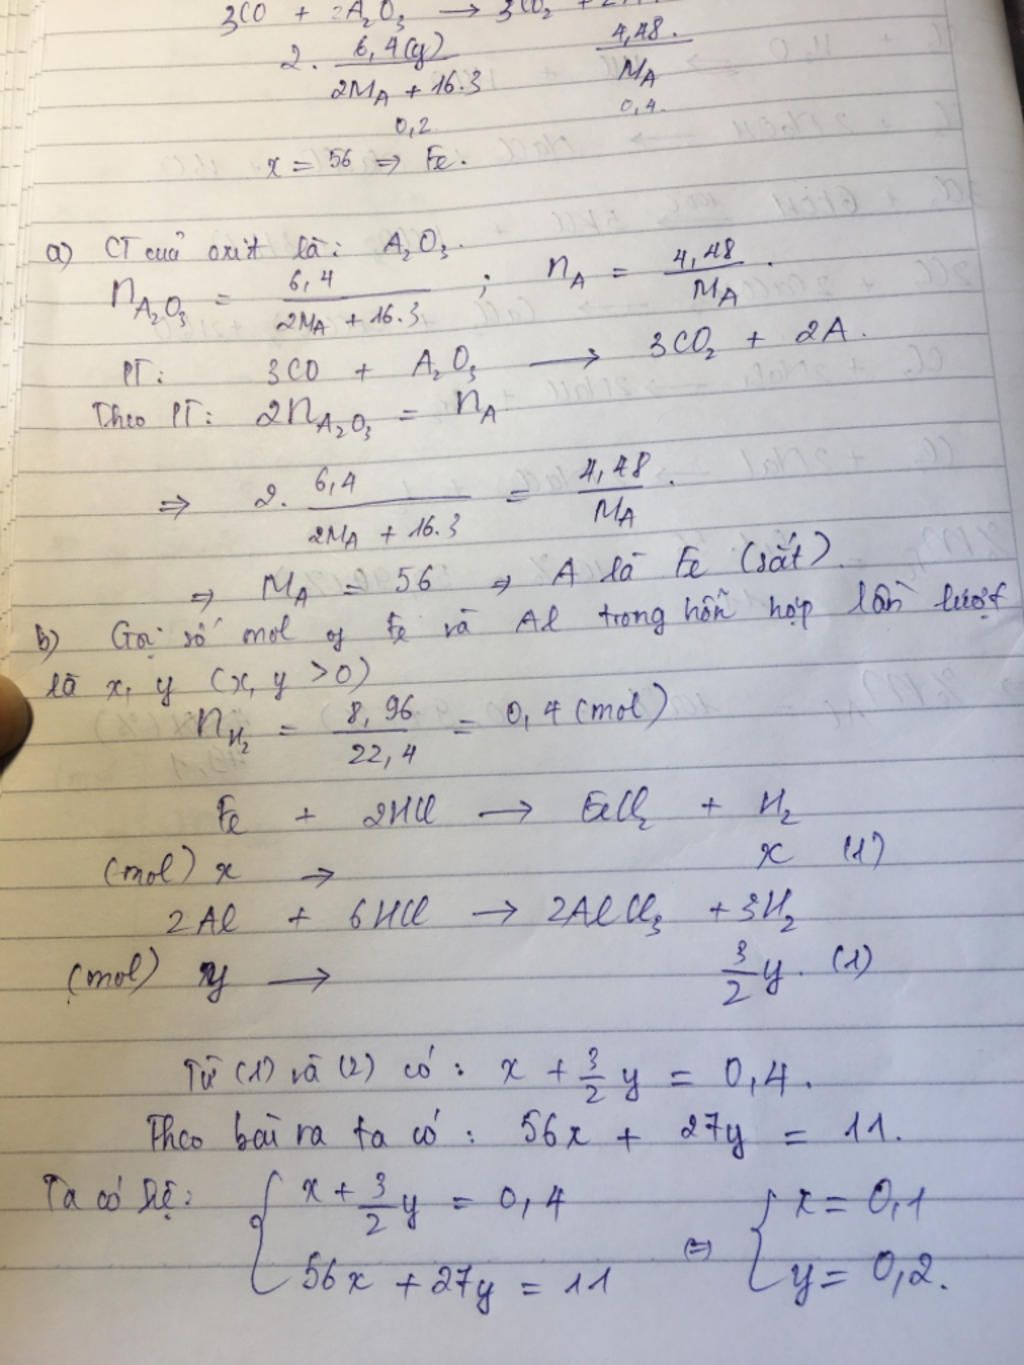 3CO + 2A₂O₃ → 3CO₂ +
2. 6,4(g) / (2M_A + 16.3)    4,48. / M_A
0,2    0,4
x = 56 ⇒ Fe.
a) CT của oxit là: A₂O₃.
n_A₂O₃ = 6,4 / (2M_A + 16.3) ; n_A = 4,48 / M_A .
PT: 3CO + A₂O₃ → 3CO₂ + 2A.
Theo PT: 2n_A₂O₃ = n_A
⇒ 2. 6,4 / (2M_A + 16.3) = 4,48 / M_A .
⇒ M_A = 56 ⇒ A là Fe (sắt).
b) Gọi số mol of Fe và Al trong hỗn hợp lần lượt
là x, y (x, y > 0)
n_H₂ = 8,96 / 22,4 = 0,4 (mol)
Fe + 2HCl → FeCl₂ + H₂
(mol) x → x (1)
2Al + 6HCl → 2AlCl₃ + 3H₂
(mol) y → 3/2 y. (1)
Từ (1) và (2) có: x + 3/2 y = 0,4.
Theo bài ra ta có: 56x + 27y = 11.
Ta có hệ: { x + 3/2 y = 0,4    { x = 0,1
56x + 27y = 11 (=) y = 0,2.